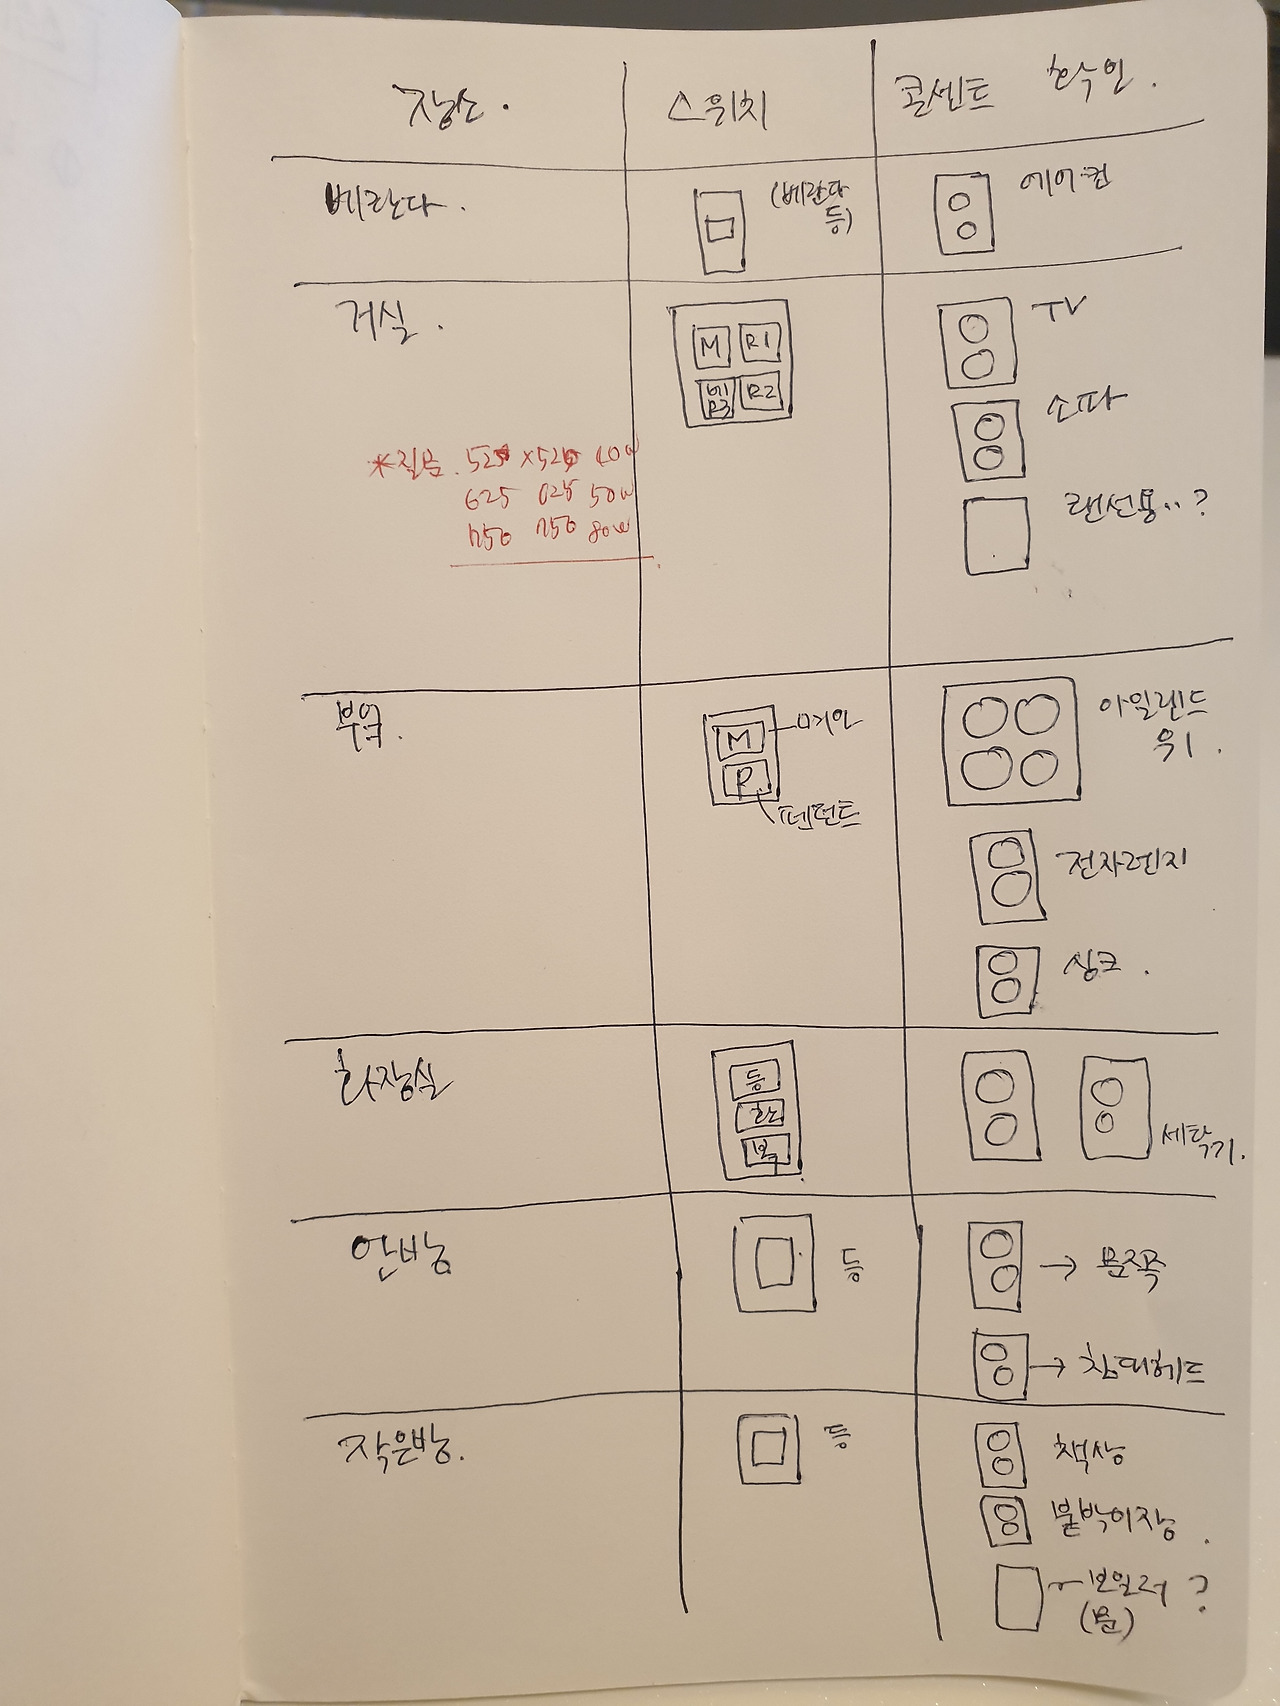 장소. 스위치 콘센트 확인.
베란다. (베란다 등) 에어컨
거실. M R1 TV
베 R3 R2
소파
*질문. 525 × 525 60W
625 625 50W
랜선용..?
750 750 80W
부엌. M 메인 아일랜드
위.
R 펜던트
전자렌지
싱크.
화장실 등
환
복
세탁기.
안방 등 → 문쪽
→ 침대헤드
작은방. 등 책상
붙박이장.
보일러 ?
(문)